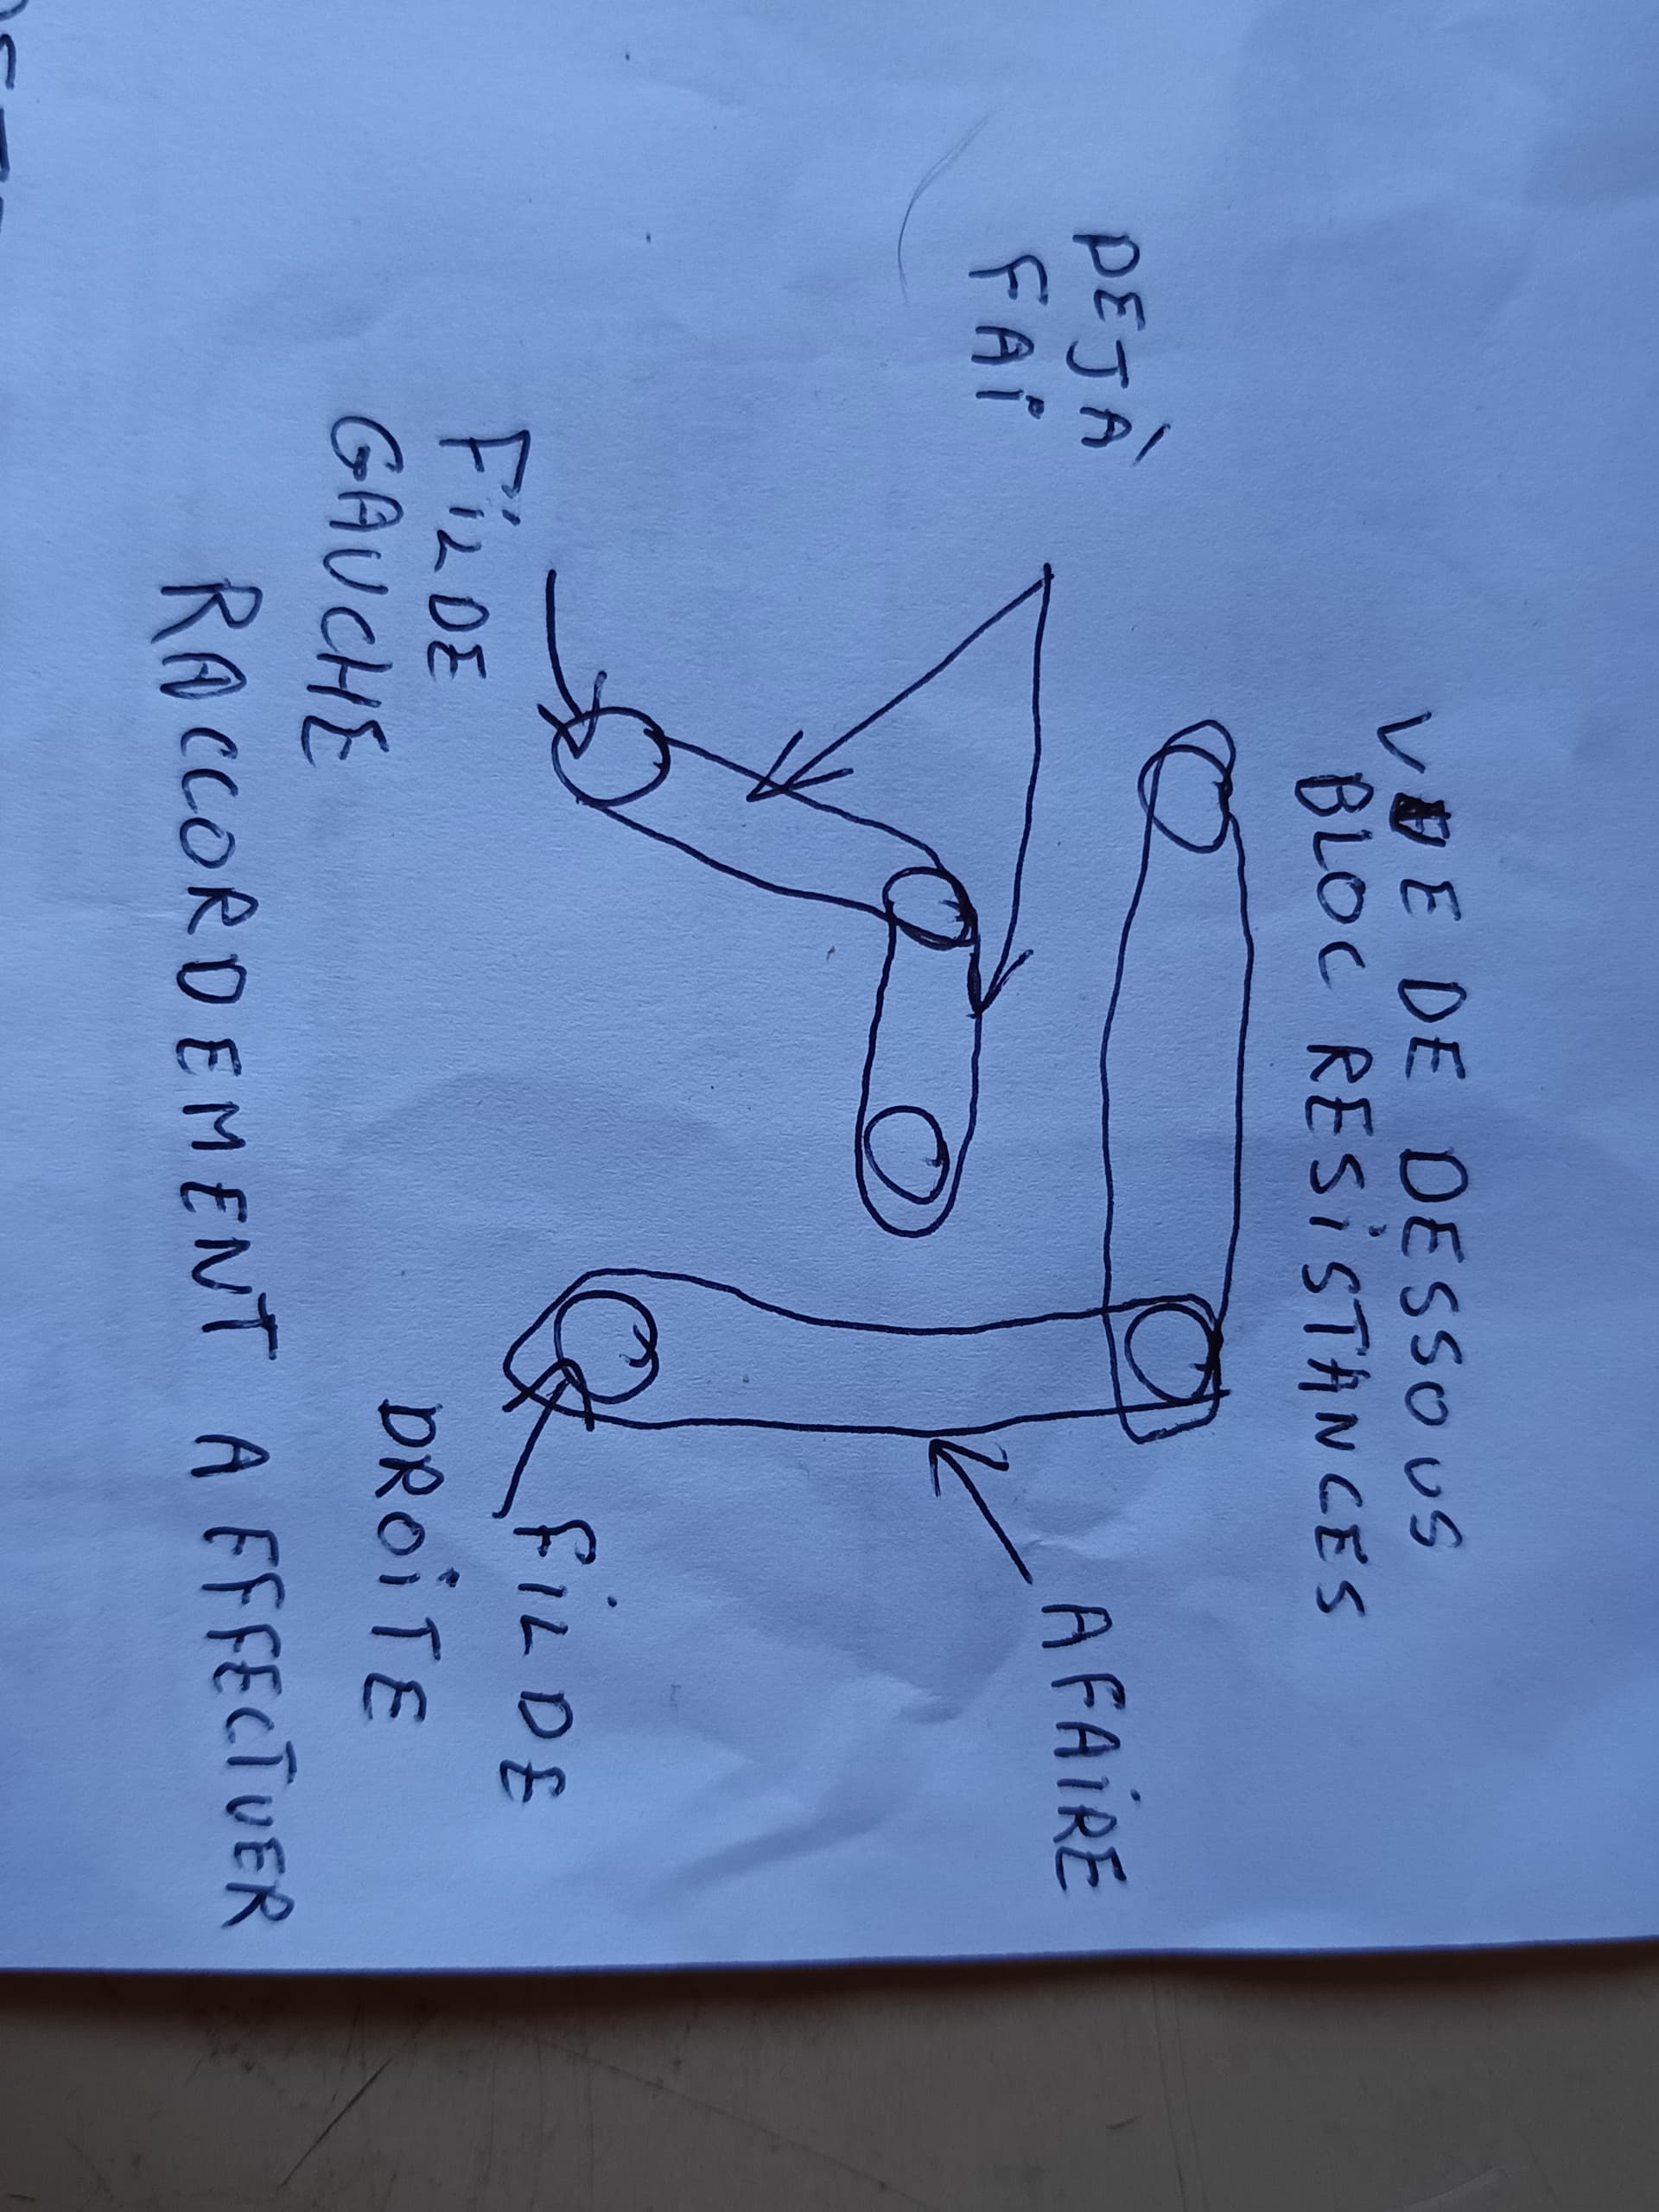 VUE DE DESSOUS
BLOC RESISTANCES
DEJÁ
FAI
A FAIRE
FIL DE
GAUCHE
FIL DE
DROITE
RACCORDEMENT A EFFECTUER